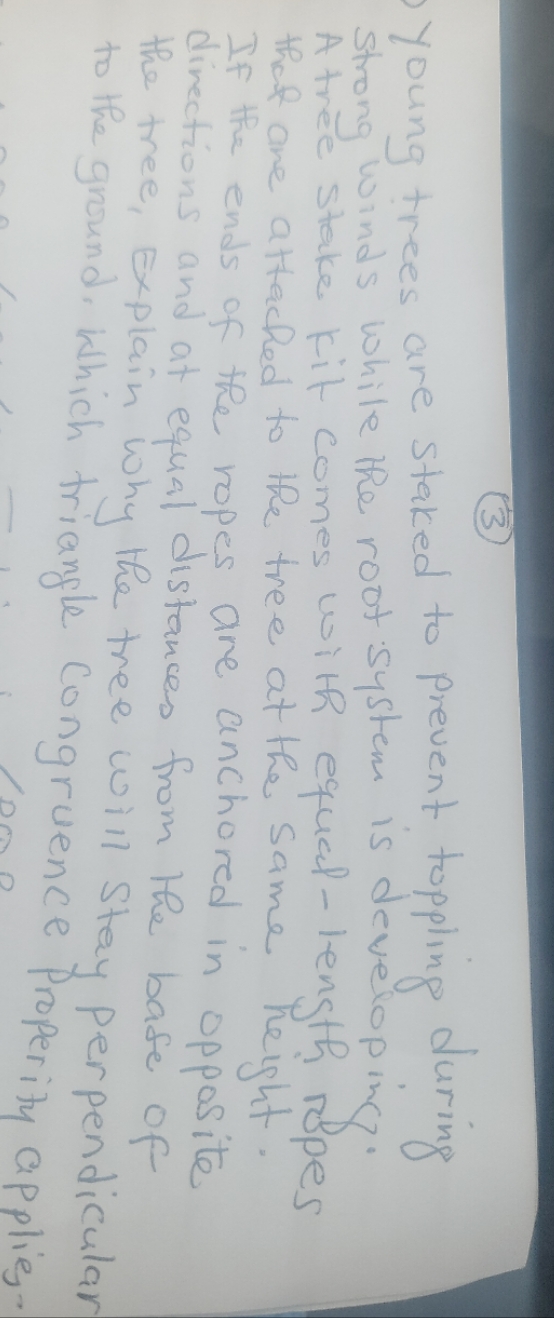 ③
Young trees are staked to prevent toppling during
strong winds while the root system is developing.
A tree stake kit comes with equal-length ropes
that are attached to the tree at the same height.
If the ends of the ropes are anchored in opposite
directions and at equal distances from the base of
the tree, Explain why the tree will stay perpendicular
to the ground. Which triangle Congruence Properity applies.